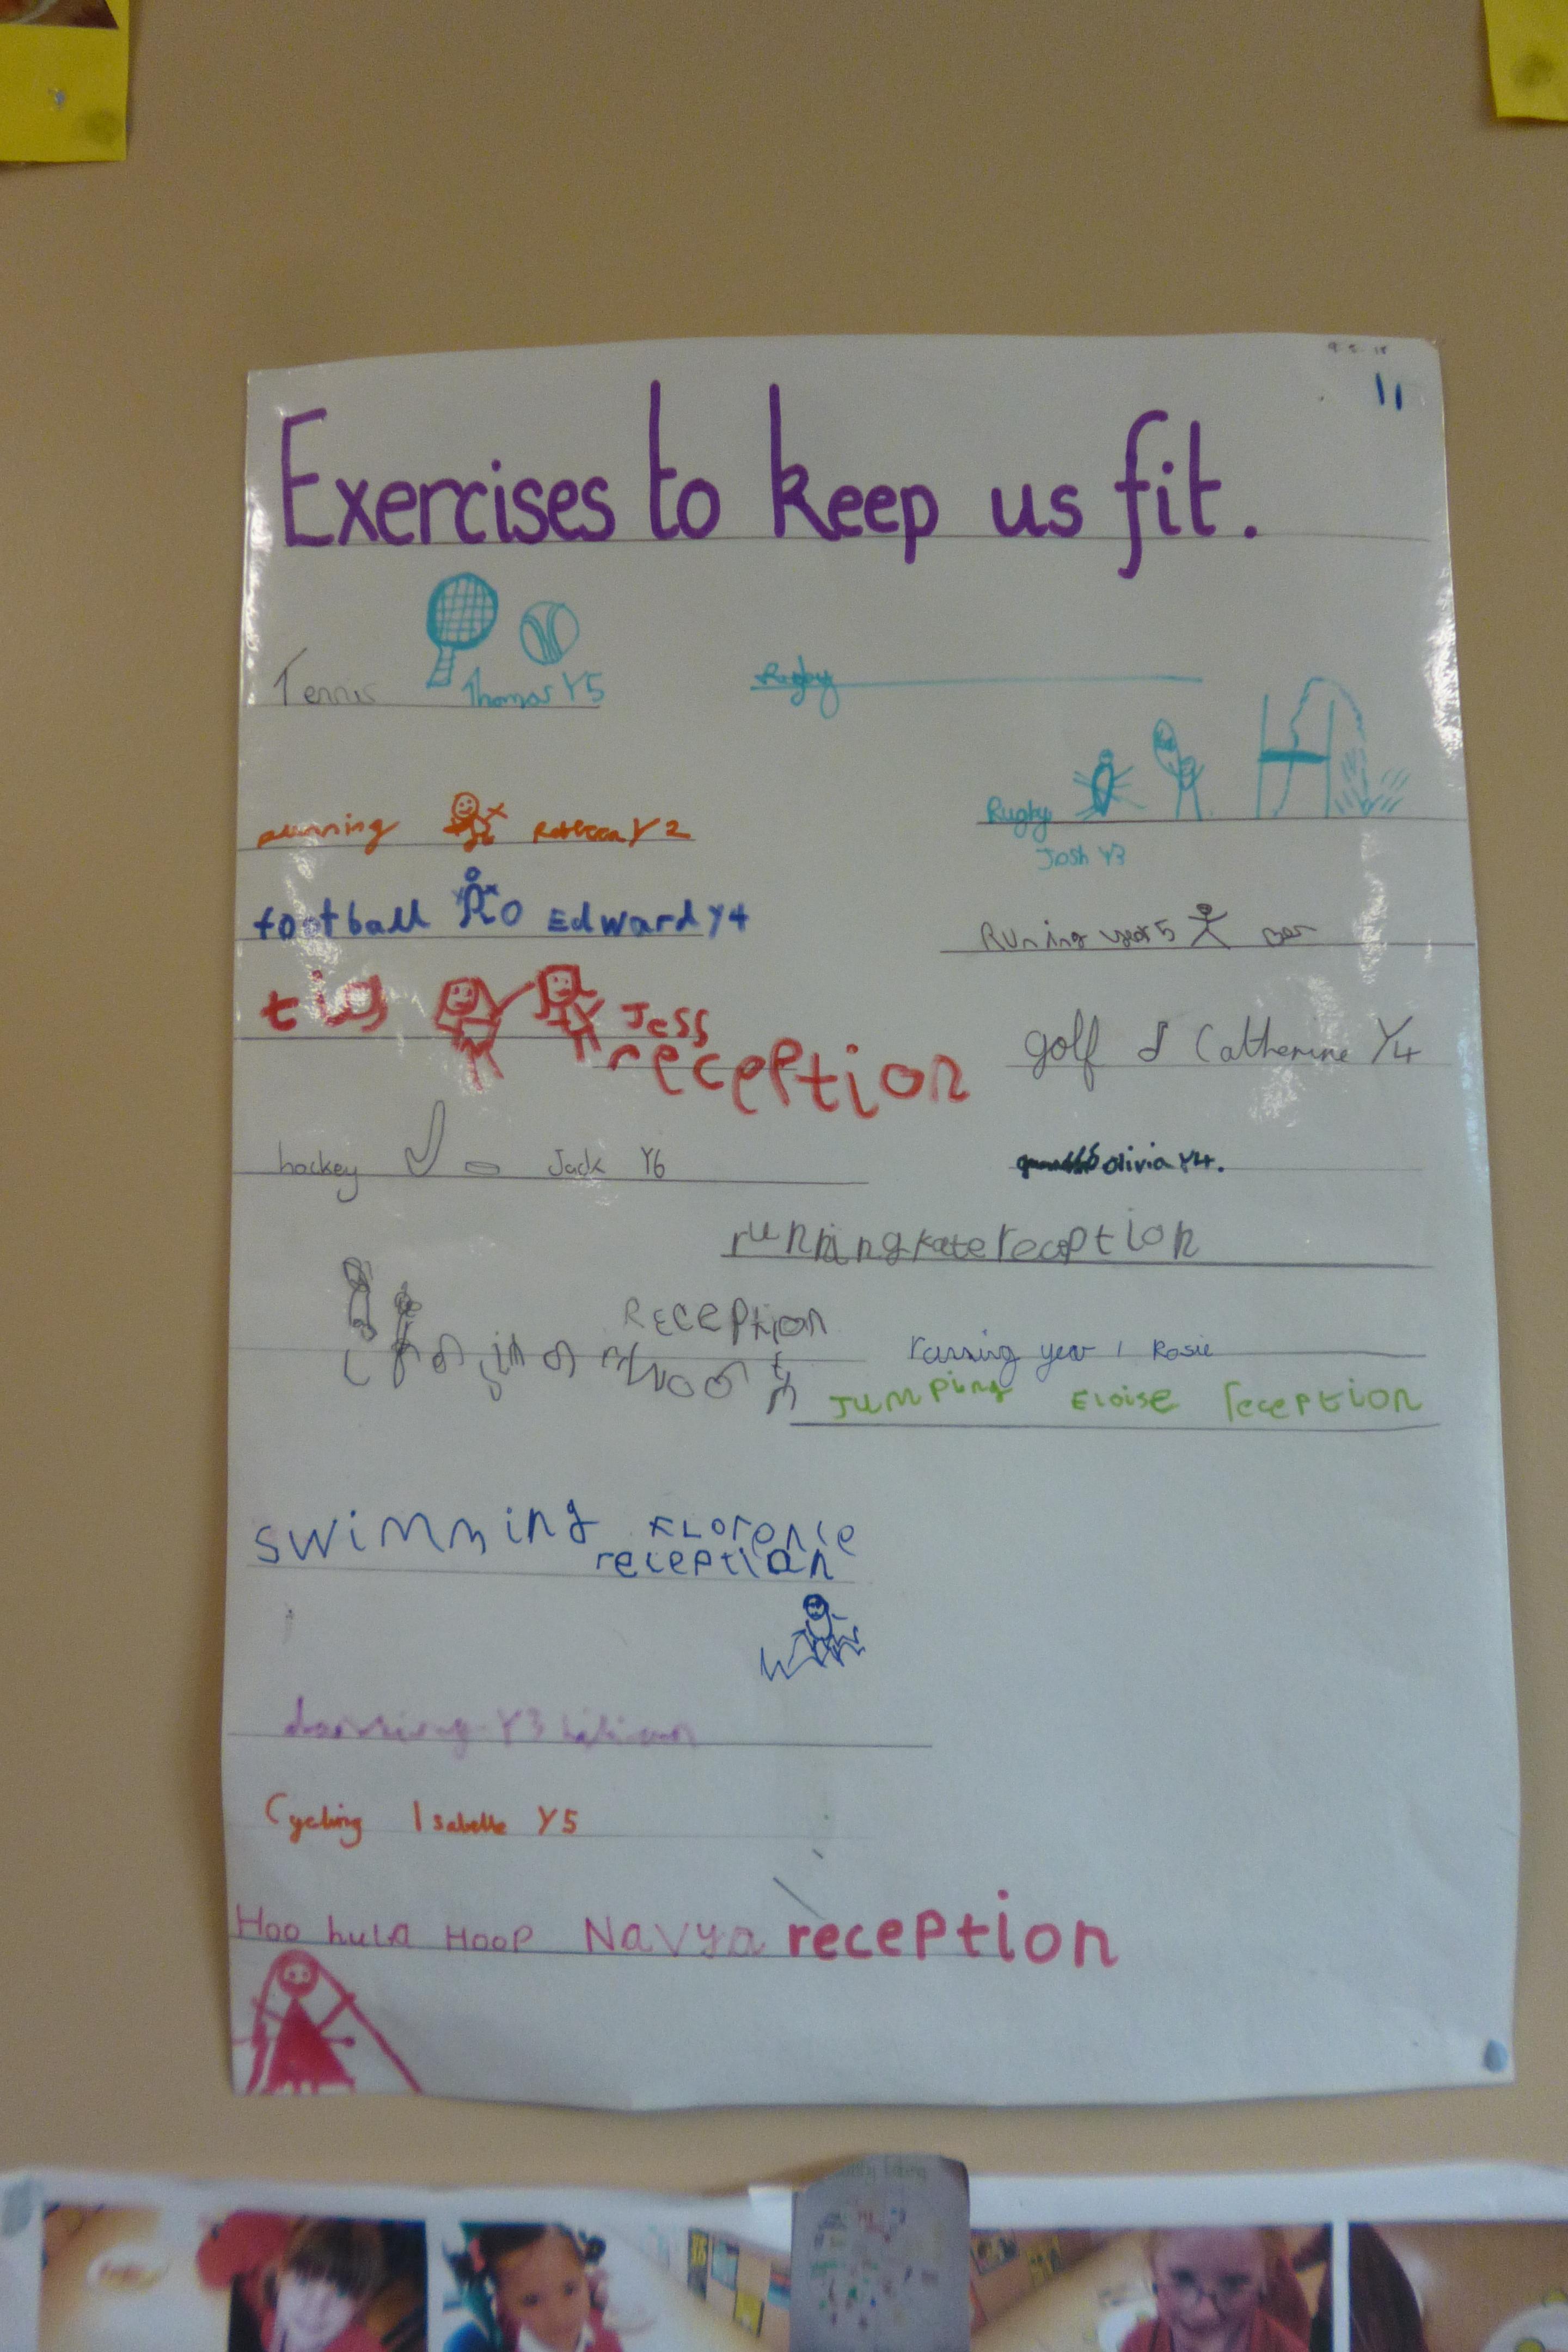 Exercises to keep us fit.
Tennis Thomas Y5
Rugby
running Y2
Rugby
Josh Y3
football Edward Y4
Runing year 5
tig Jess
reception
golf Catherine Y4
hockey Jack Y6
olivia Y4.
running kate reception
Reception
running year 1 Rosie
Jumping Eloise reception
swimming Florence
reception
Y3
Cycling Isabelle Y5
Hoo hula Hoop Navya reception